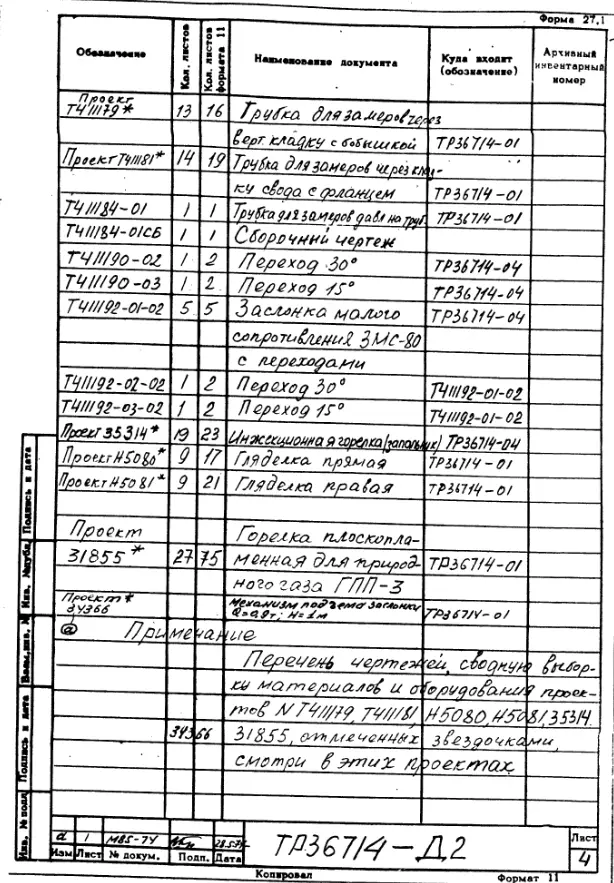 Форма 27,1
Обозначение Кол. листов Кол. листов формата 11 Наименование документа Куда входит (обозначение) Архивный инвентарный номер
Проект
Т411179* 13 16 Трубка для замеров через
верт. кладку с бобышкой ТР36714-01
Проект Т411181* 14 19 Трубка для замеров через клад-
ку свода с фланцем ТР36714-01
Т411184-01 1 1 Трубка для замеров давл на труб. ТР36714-01
Т411184-01СБ 1 1 Сборочный чертеж
Т411190-02 1 2 Переход 30° ТР36714-04
Т411190-03 1 2 Переход 15° ТР36714-04
Т411192-01-02 5 5 Заслонка малого ТР36714-04
сопротивления ЗМС-80
с переходами
Т411192-02-02 1 2 Переход 30° Т411192-01-02
Т411192-03-02 1 2 Переход 15° Т411192-01-02
Проект 35314* 19 23 Инжекционная горелка (запальник) ТР36714-04
Проект Н5080* 9 17 Гляделка прямая ТР36714-01
Проект Н5081* 9 21 Гляделка правая ТР36714-01
Проект Горелка плоскопла-
31855* 27 75 менная для природ- ТР36714-01
ного газа ГПП-3
Проект*
34366 Механизм подъема заслонки
Q=0,9т; H=1м ТР36714-01
а Примечание
Перечень чертежей, сводную выбор-
ку материалов и оборудования проек-
тов N Т411179, Т411181, Н5080, Н5081, 35314.
34366 31855, отмеченных звездочками,
смотри в этих проектах
Инв. № подл Подпись и дата Взам. инв. № Инв. № дубл. Подпись и дата
а 1 М85-74
Изм Лист № докум. Подп. Дата
ТР36714-Д2
Лист
4
Копировал Формат 11